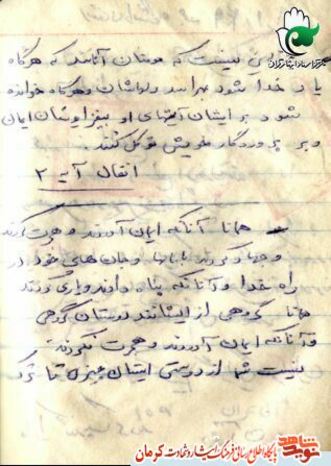 جز این نیست که مومنان آنانند که هرگاه
یاد خدا شود بهراسد دلهاشان و هرگاه خوانده
شود بر ایشان آیتهای او بیفزایدشان ایمان
و بر پروردگار خویش توکل کنند.
انفال آیه ۲
همانا آنانکه ایمان آوردند و هجرت کردند
و جهاد کردند با مالها و جان های خود در
راه خدا و آنانکه پناه دادند و یاری کردند
همانا گروهی از ایشانند دوستان گروهی
و آنانکه ایمان آوردند و هجرت نکردند
نیست شما از دوستی ایشان چیزی تا آنکه
نوید شاهد
پایگاه اطلاع رسانی فرهنگ ایثار و شهادت کرمان